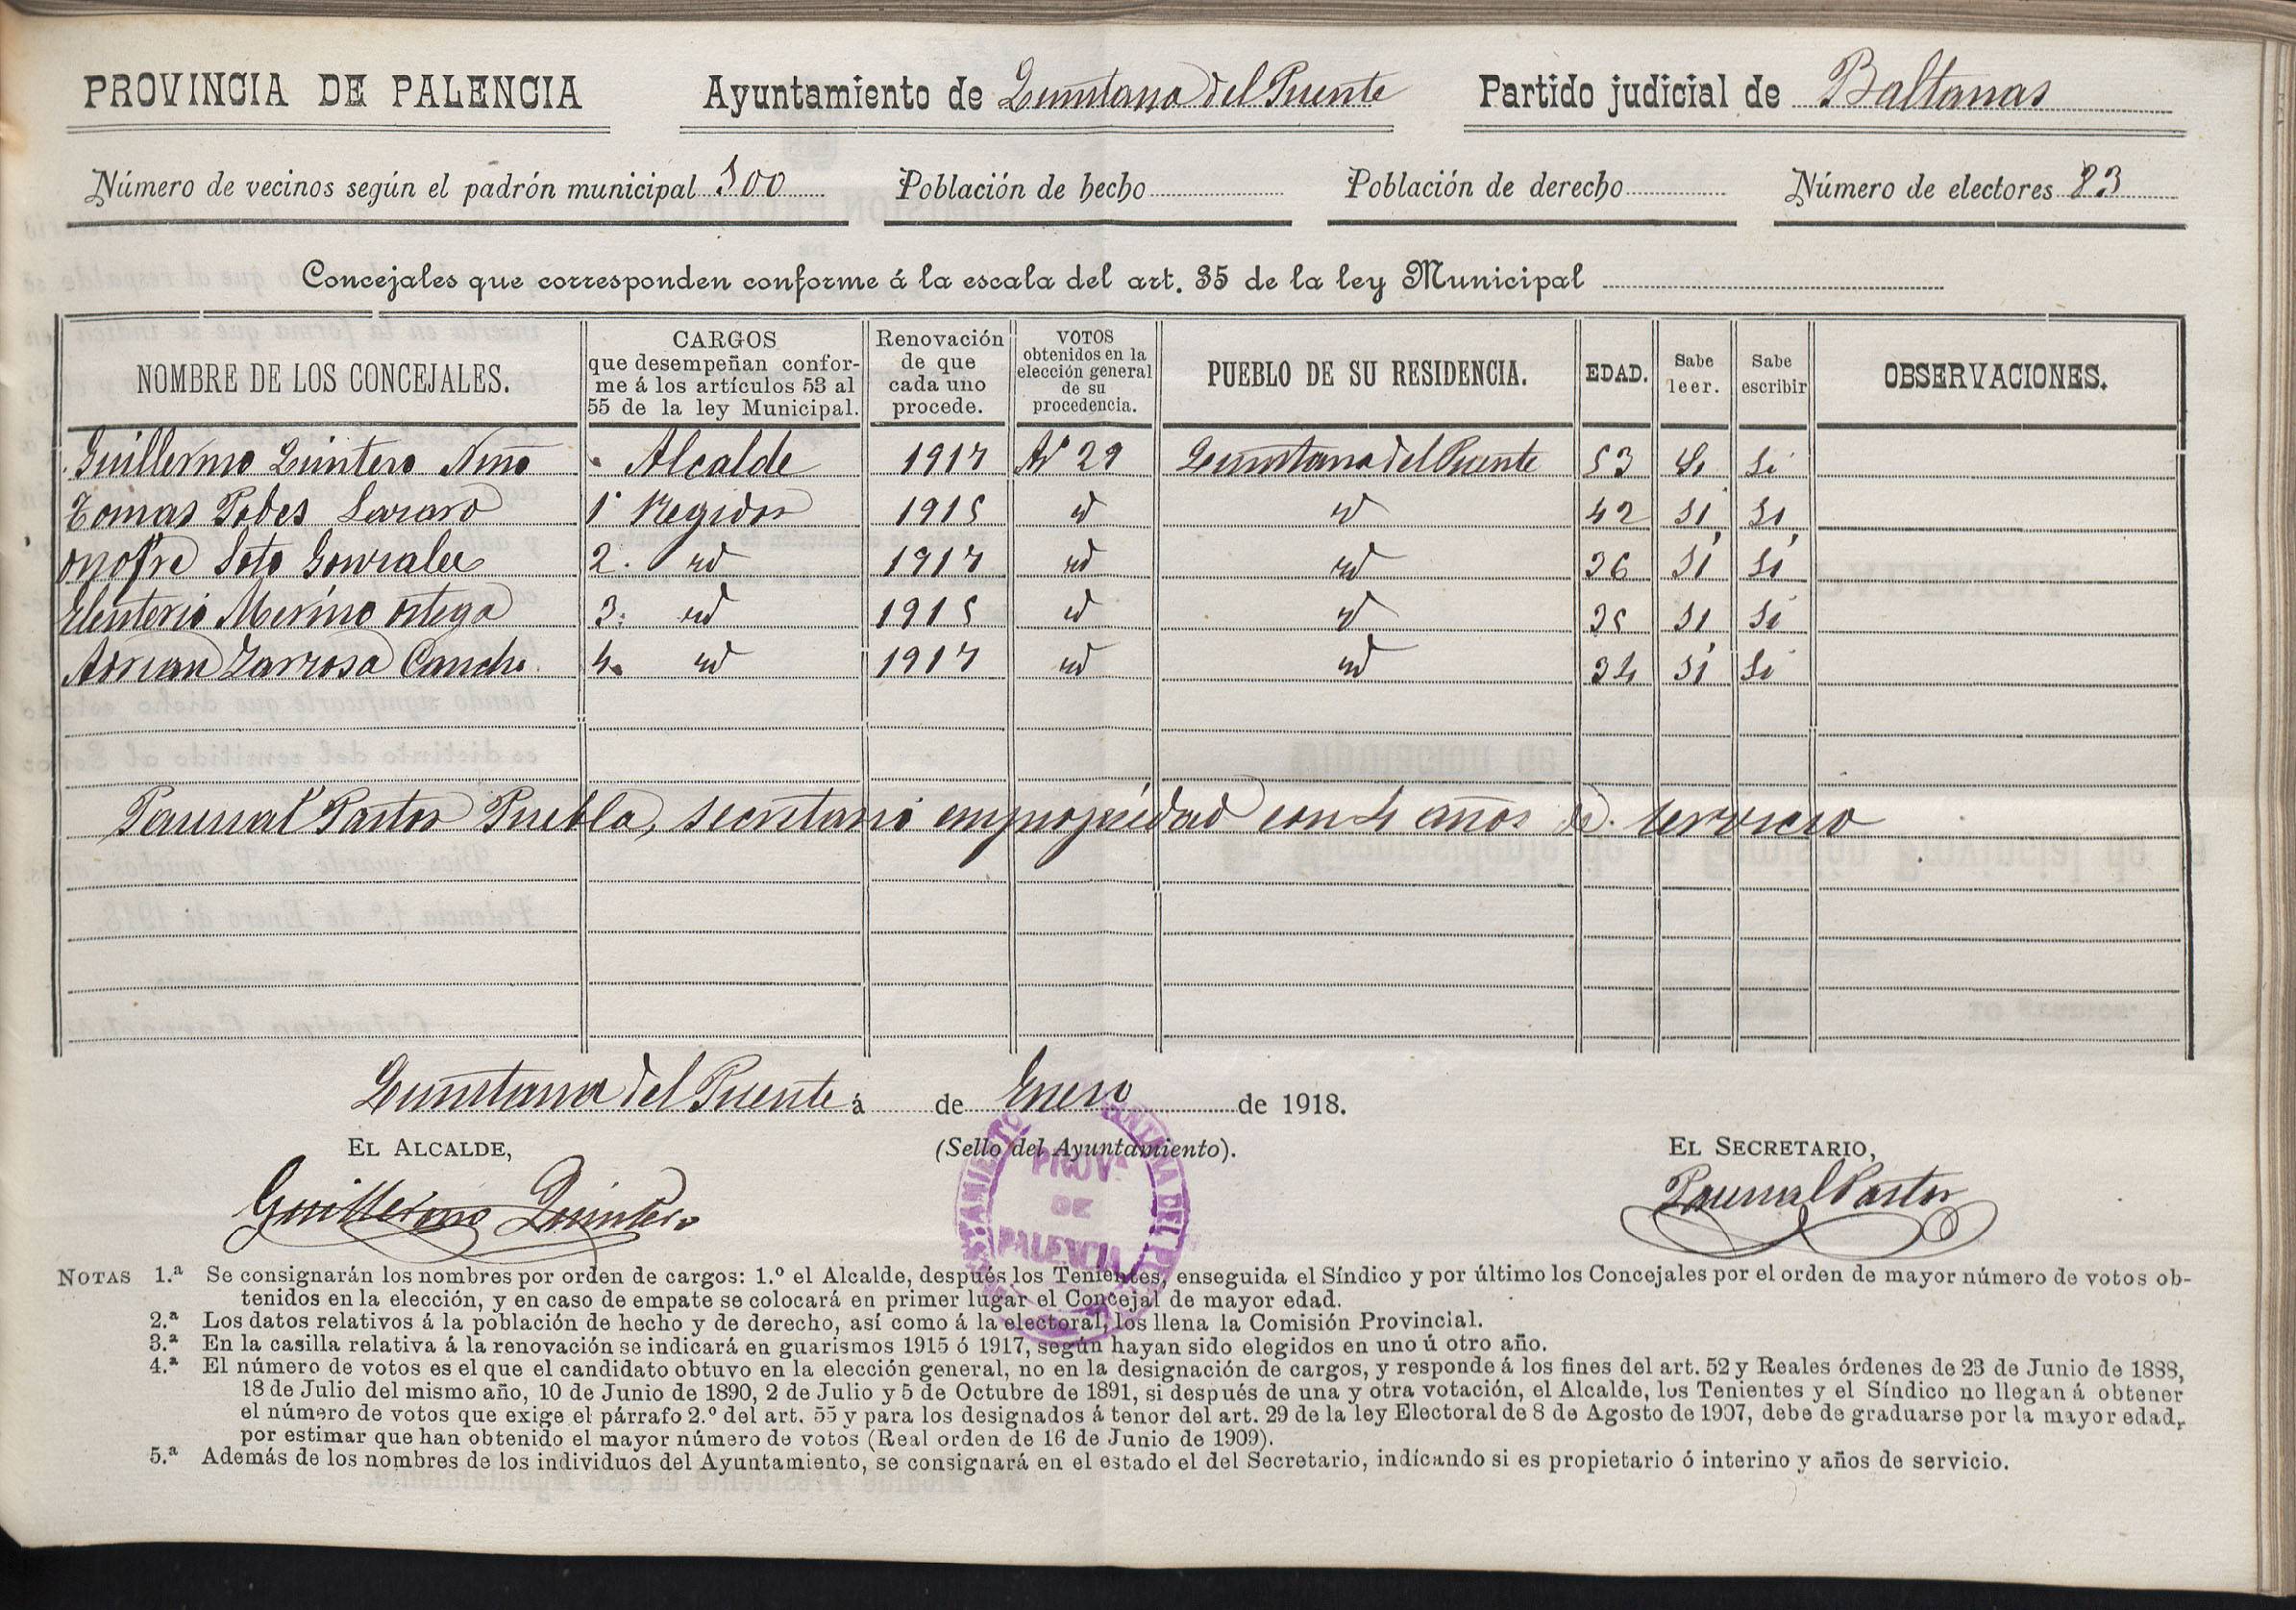 PROVINCIA DE PALENCIA Ayuntamiento de Quintana del Puente Partido judicial de Baltanas
Número de vecinos según el padrón municipal 100 Población de hecho Población de derecho Número de electores 83
Concejales que corresponden conforme á la escala del art. 35 de la ley Municipal
NOMBRE DE LOS CONCEJALES. CARGOS que desempeñan conforme á los artículos 53 al 55 de la ley Municipal. Renovación de que cada uno procede. VOTOS obtenidos en la elección general de su procedencia. PUEBLO DE SU RESIDENCIA. EDAD. Sabe leer. Sabe escribir OBSERVACIONES.
Guillermo Quintero Niño Alcalde 1917 Art 29 Quintana del Puente 53 Si Si
Tomas Lazaro 1º Regidor 1915 id id 42 Si Si
Onofre Soto Gonzalez 2. id 1917 id id 36 Si Si
Eleuterio Merino Ortega 3. id 1915 id id 35 Si Si
Adrian Zarzosa 4. id 1917 id id 34 Si Si
Pascual Pastor Puebla, secretario en propiedad con 4 años de servicio
Quintana del Puente á de Enero de 1918.
EL ALCALDE, (Sello del Ayuntamiento). EL SECRETARIO,
Guillermo Quintero Pascual Pastor
PROVª
DE
PALENCIA
NOTAS 1.ª Se consignarán los nombres por orden de cargos: 1.º el Alcalde, después los Tenientes, enseguida el Síndico y por último los Concejales por el orden de mayor número de votos ob-
tenidos en la elección, y en caso de empate se colocará en primer lugar el Concejal de mayor edad.
2.ª Los datos relativos á la población de hecho y de derecho, así como á la electoral, los llena la Comisión Provincial.
3.ª En la casilla relativa á la renovación se indicará en guarismos 1915 ó 1917, según hayan sido elegidos en uno ú otro año.
4.ª El número de votos es el que el candidato obtuvo en la elección general, no en la designación de cargos, y responde á los fines del art. 52 y Reales órdenes de 23 de Junio de 1888,
18 de Julio del mismo año, 10 de Junio de 1890, 2 de Julio y 5 de Octubre de 1891, si después de una y otra votación, el Alcalde, los Tenientes y el Síndico no llegan á obtener
el número de votos que exige el párrafo 2.º del art. 55 y para los designados á tenor del art. 29 de la ley Electoral de 8 de Agosto de 1907, debe de graduarse por la mayor edad,
por estimar que han obtenido el mayor número de votos (Real orden de 16 de Junio de 1909).
5.ª Además de los nombres de los individuos del Ayuntamiento, se consignará en el estado el del Secretario, indicando si es propietario ó interino y años de servicio.